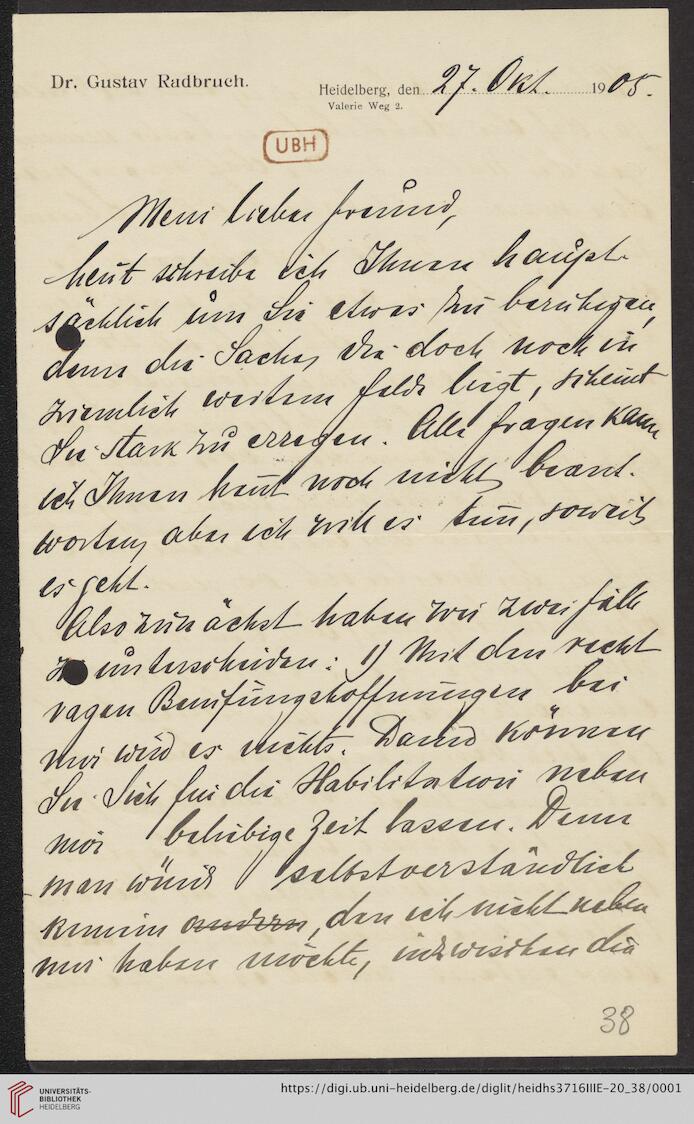 Dr. Gustav Radbruch.
Heidelberg, den 27. Okt. 1905.
Valerie Weg 2.
UBH
Mein lieber Freund,
heut schreibe ich Ihnen haupt-
sächlich um Sie etwas zu beruhigen,
denn die Sache, die doch noch in
ziemlich weitem Felde liegt, scheint
Sie stark zu erregen. Alle Fragen kann
ich Ihnen heut noch nicht beant-
worten, aber ich will es tun, soweit
es geht.
Also zunächst haben wir zwei Fälle
zu unterscheiden: 1) Mit den recht
vagen Berufungshoffnungen bei
mir wird es nichts. Dann können
Sie Sich für die Habilitation neben
mir beliebige Zeit lassen. Denn
man würde selbstverständlich
keinen andern, den ich nicht neben
mir haben möchte, inzwischen die
38
UNIVERSITÄTS-
BIBLIOTHEK
HEIDELBERG
https://digi.ub.uni-heidelberg.de/diglit/heidhs3716IIIE-20_38/0001